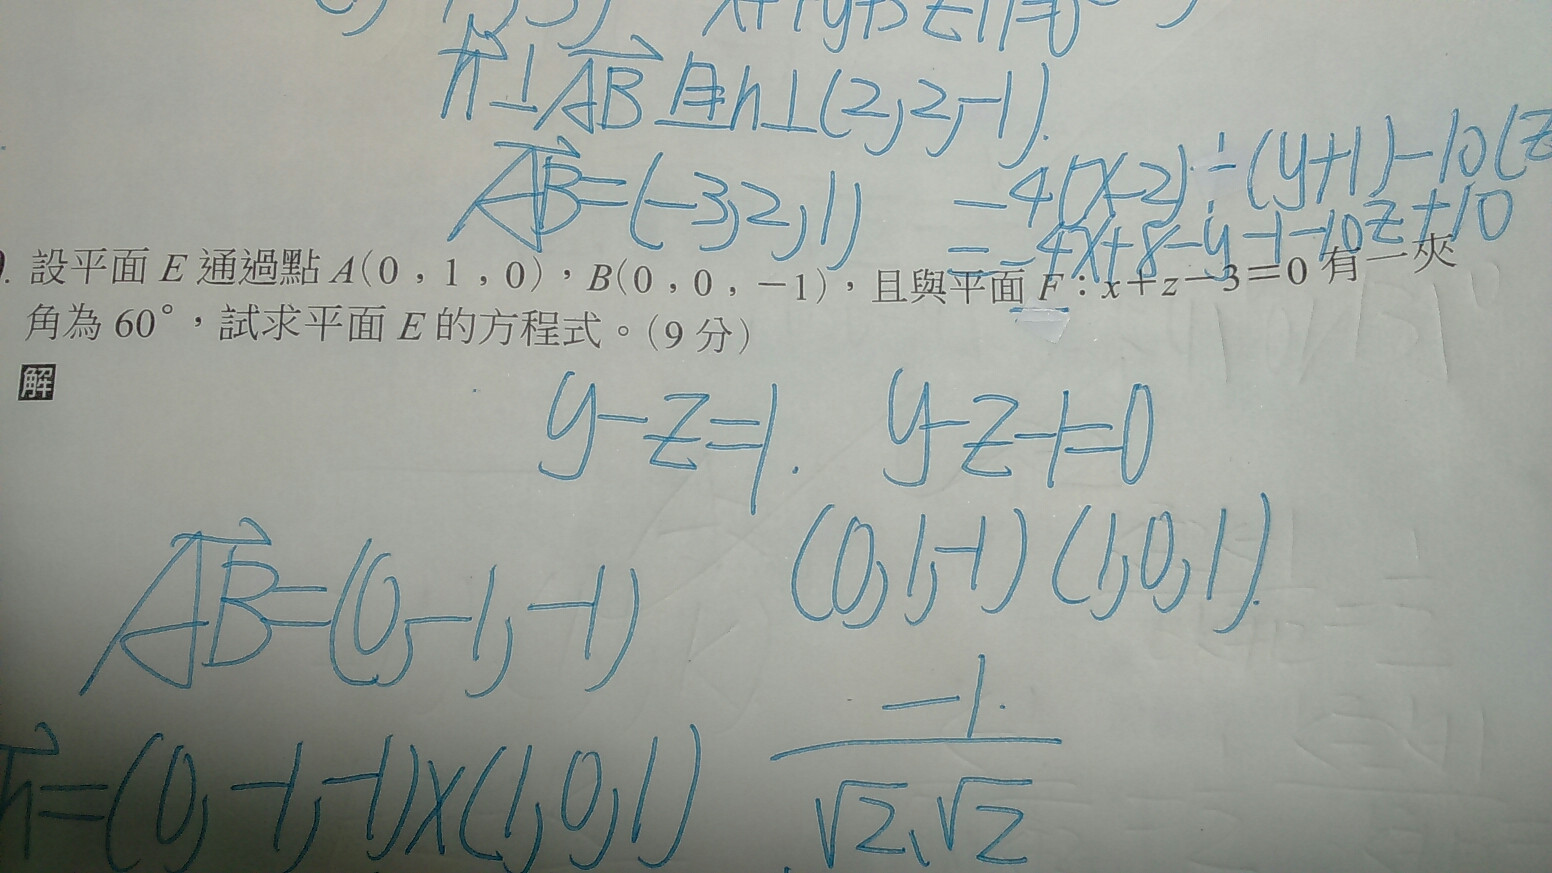 n⊥AB且n⊥(2,2,-1).
AB=(-3,2,1)
-4(x-2)-(y+1)-10(z
=-4x+8-y-1-10z+10
設平面 E 通過點 A(0,1,0),B(0,0,-1),且與平面 F:x+z-3=0 有一夾
角為 60°,試求平面 E 的方程式。(9 分)
解
y-z=1. y-z-1=0
(0,1,-1)(1,0,1).
AB=(0,-1,-1)
-1.
√2、√2
n=(0,-1,-1)×(1,0,1)